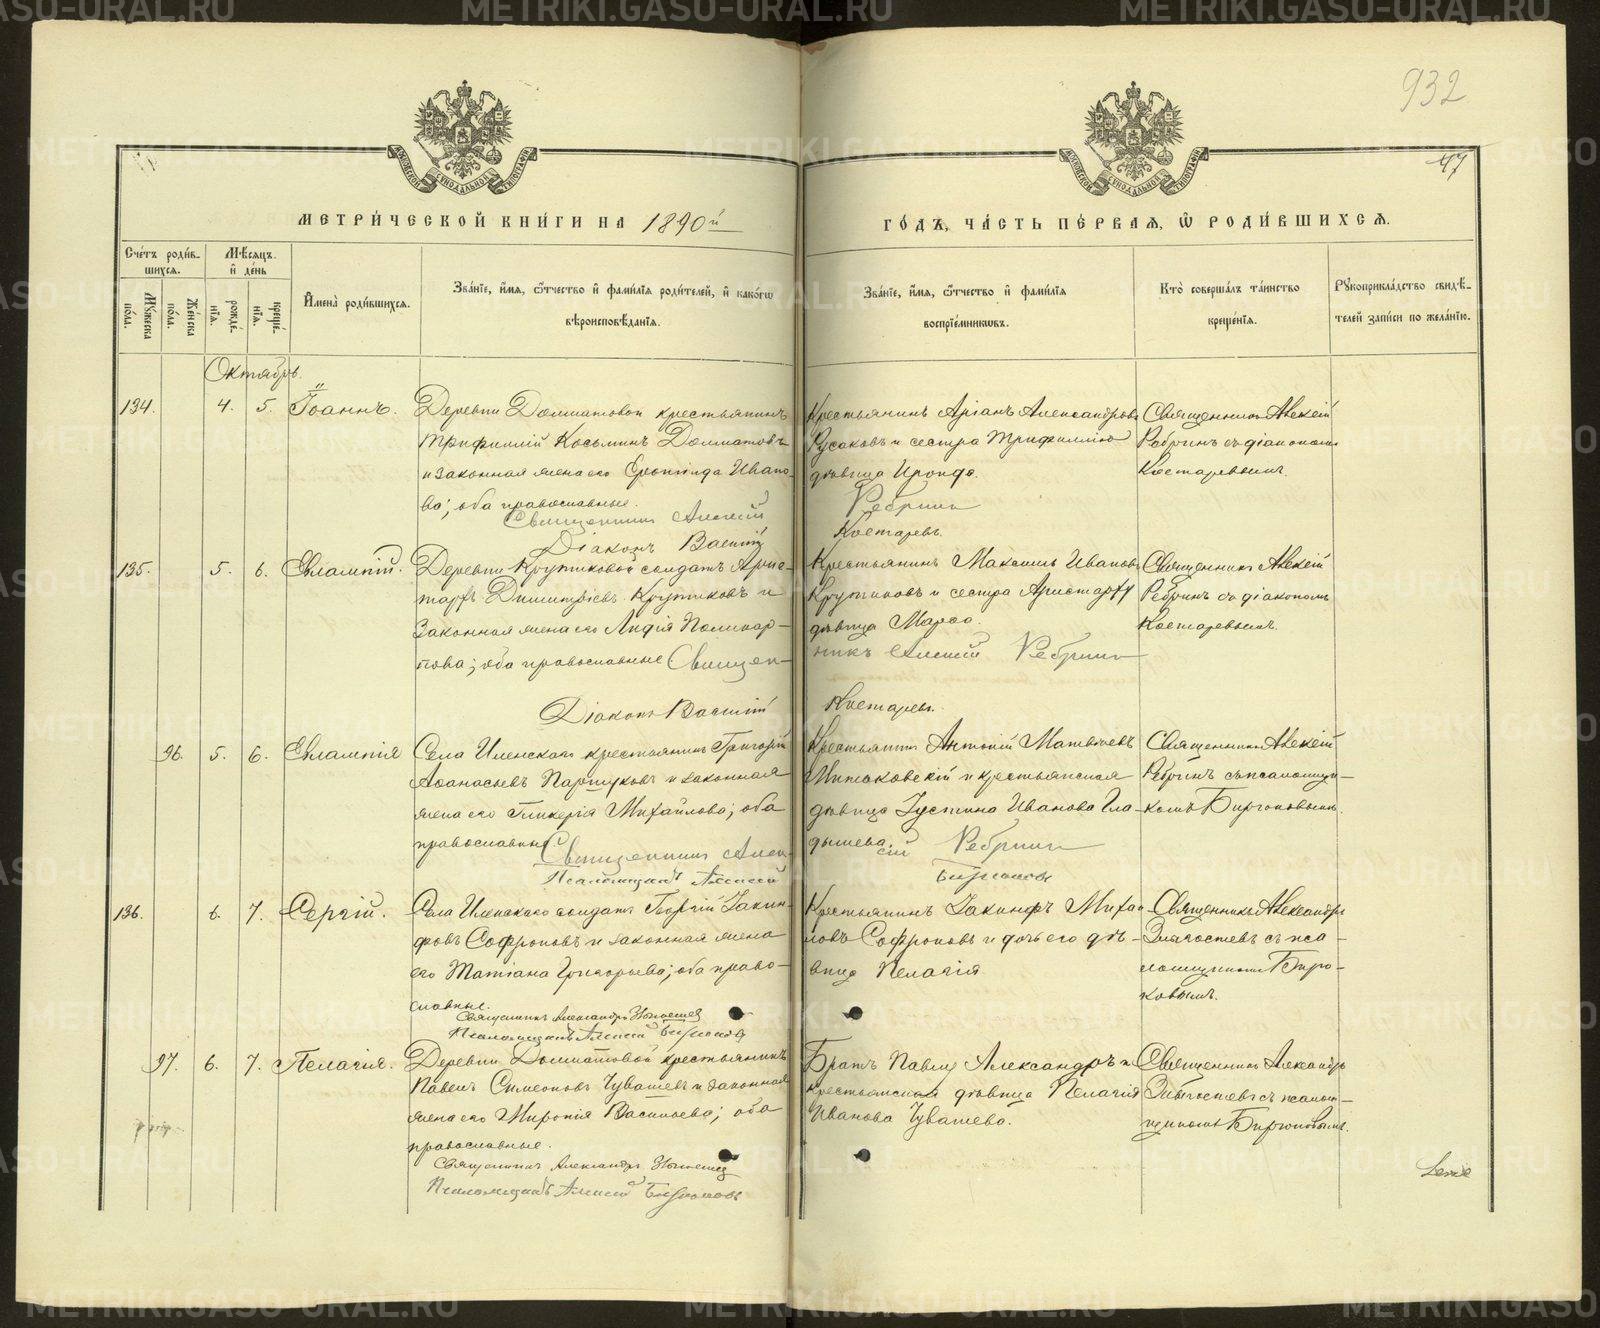 METRIKI.GASO-URAL.RU
932
47
МОСКОВСКОЙ СѴНОДАЛЬНОЙ ТИПОГРАФІИ
МОСКОВСКОЙ СѴНОДАЛЬНОЙ ТИПОГРАФІИ
МЕТРИ́ЧЕСКОЙ КНИ́ГИ НА 1890й
ГО́ДЪ, ЧА́СТЬ ПЕ́РВАЯ, Ѽ РОДИ́ВШИХСЯ.
Сче́тъ роди́в-
шихся.
Мѣ́сяцъ
и҆ де́нь
Мꙋ́жеска по́ла.
Же́нска по́ла.
рожде́-нїѧ.
креще́-нїѧ.
И҆мена̀ роди́вшихся.
Зва́нїе, и҆́мѧ, ѻ҆́тчество и҆ фами́лїѧ роди́телей, и҆ како́гѡ
вѣроисповѣ́данїѧ.
Зва́нїе, и҆́мѧ, ѻ҆́тчество и҆ фами́лїѧ
воспрїе́мникѡвъ.
Кто̀ соверша́лъ та́инство
креще́нїѧ.
Рꙋкоприкла́дство свидѣ́-
телей за́писи по жела́нїю.
Октябрь.
134. 4. 5. Іоаннъ.
Деревни Долматовой крестьянинъ
Трифиллій Косьминъ Долматовъ
и законная жена его Ивано-
ва; оба православные.
Священникъ Алексій
Діаконъ Василій
Крестьянинъ Александровъ
Русаковъ и сестра Трифиллію
дѣвица
Ребринъ
Костаревъ.
Священникъ Алексій
Ребринъ съ діакономъ
Костаревымъ.
135. 5. 6. Евлампій.
Деревни Крутиковой солдатъ Арис-
тархъ Димитріевъ Крутиковъ и
законная жена его Лидія Поликар-
пова; оба православные Священ-
Діаконъ Василій
Крестьянинъ Максимъ Ивановъ
Крутиковъ и сестра Аристарху
дѣвица
никъ Алексій Ребринъ
Костаревъ.
Священникъ Алексій
Ребринъ съ діакономъ
Костаревымъ.
96. 5. 6. Евлампія
Села Иленскаго крестьянинъ Григорій
Аѳанасьевъ Паршуковъ и законная
жена его Гликерія Михайлова; оба
православные
Священникъ Алек-
Псаломщикъ Алексій
Крестьянинъ Антоній Матвѣевъ
и крестьянская
дѣвица Іустина Иванова Гла-
дышева.
сій Ребринъ
Бирюковъ
Священникъ Алексій
Ребринъ съ псаломщи-
комъ Бирюковымъ.
136. 6. 7. Сергій.
Села Иленскаго солдатъ Георгій Іакин-
фовъ Софроновъ и законная жена
его Татіана Григорьева; оба право-
славные.
Священникъ Александръ
Псаломщикъ Алексій Бирюковъ
Крестьянинъ Іакинфъ Михаи-
ловъ Софроновъ и дочь его дѣ-
вица Пелагія
Священникъ Александръ
съ пса-
ломщикомъ Бирю-
ковымъ.
97. 6. 7. Пелагія.
Деревни Долматовой крестьянинъ
Павелъ Симеоновъ Чувашевъ и законная
жена его Васильева; оба
православные.
Священникъ Александръ
Псаломщикъ Алексій Бирюковъ
Братъ Павлу Александръ и
крестьянская дѣвица Пелагія
Иванова Чувашева.
Священникъ Александръ
съ псалом-
щикомъ Бирюковымъ.